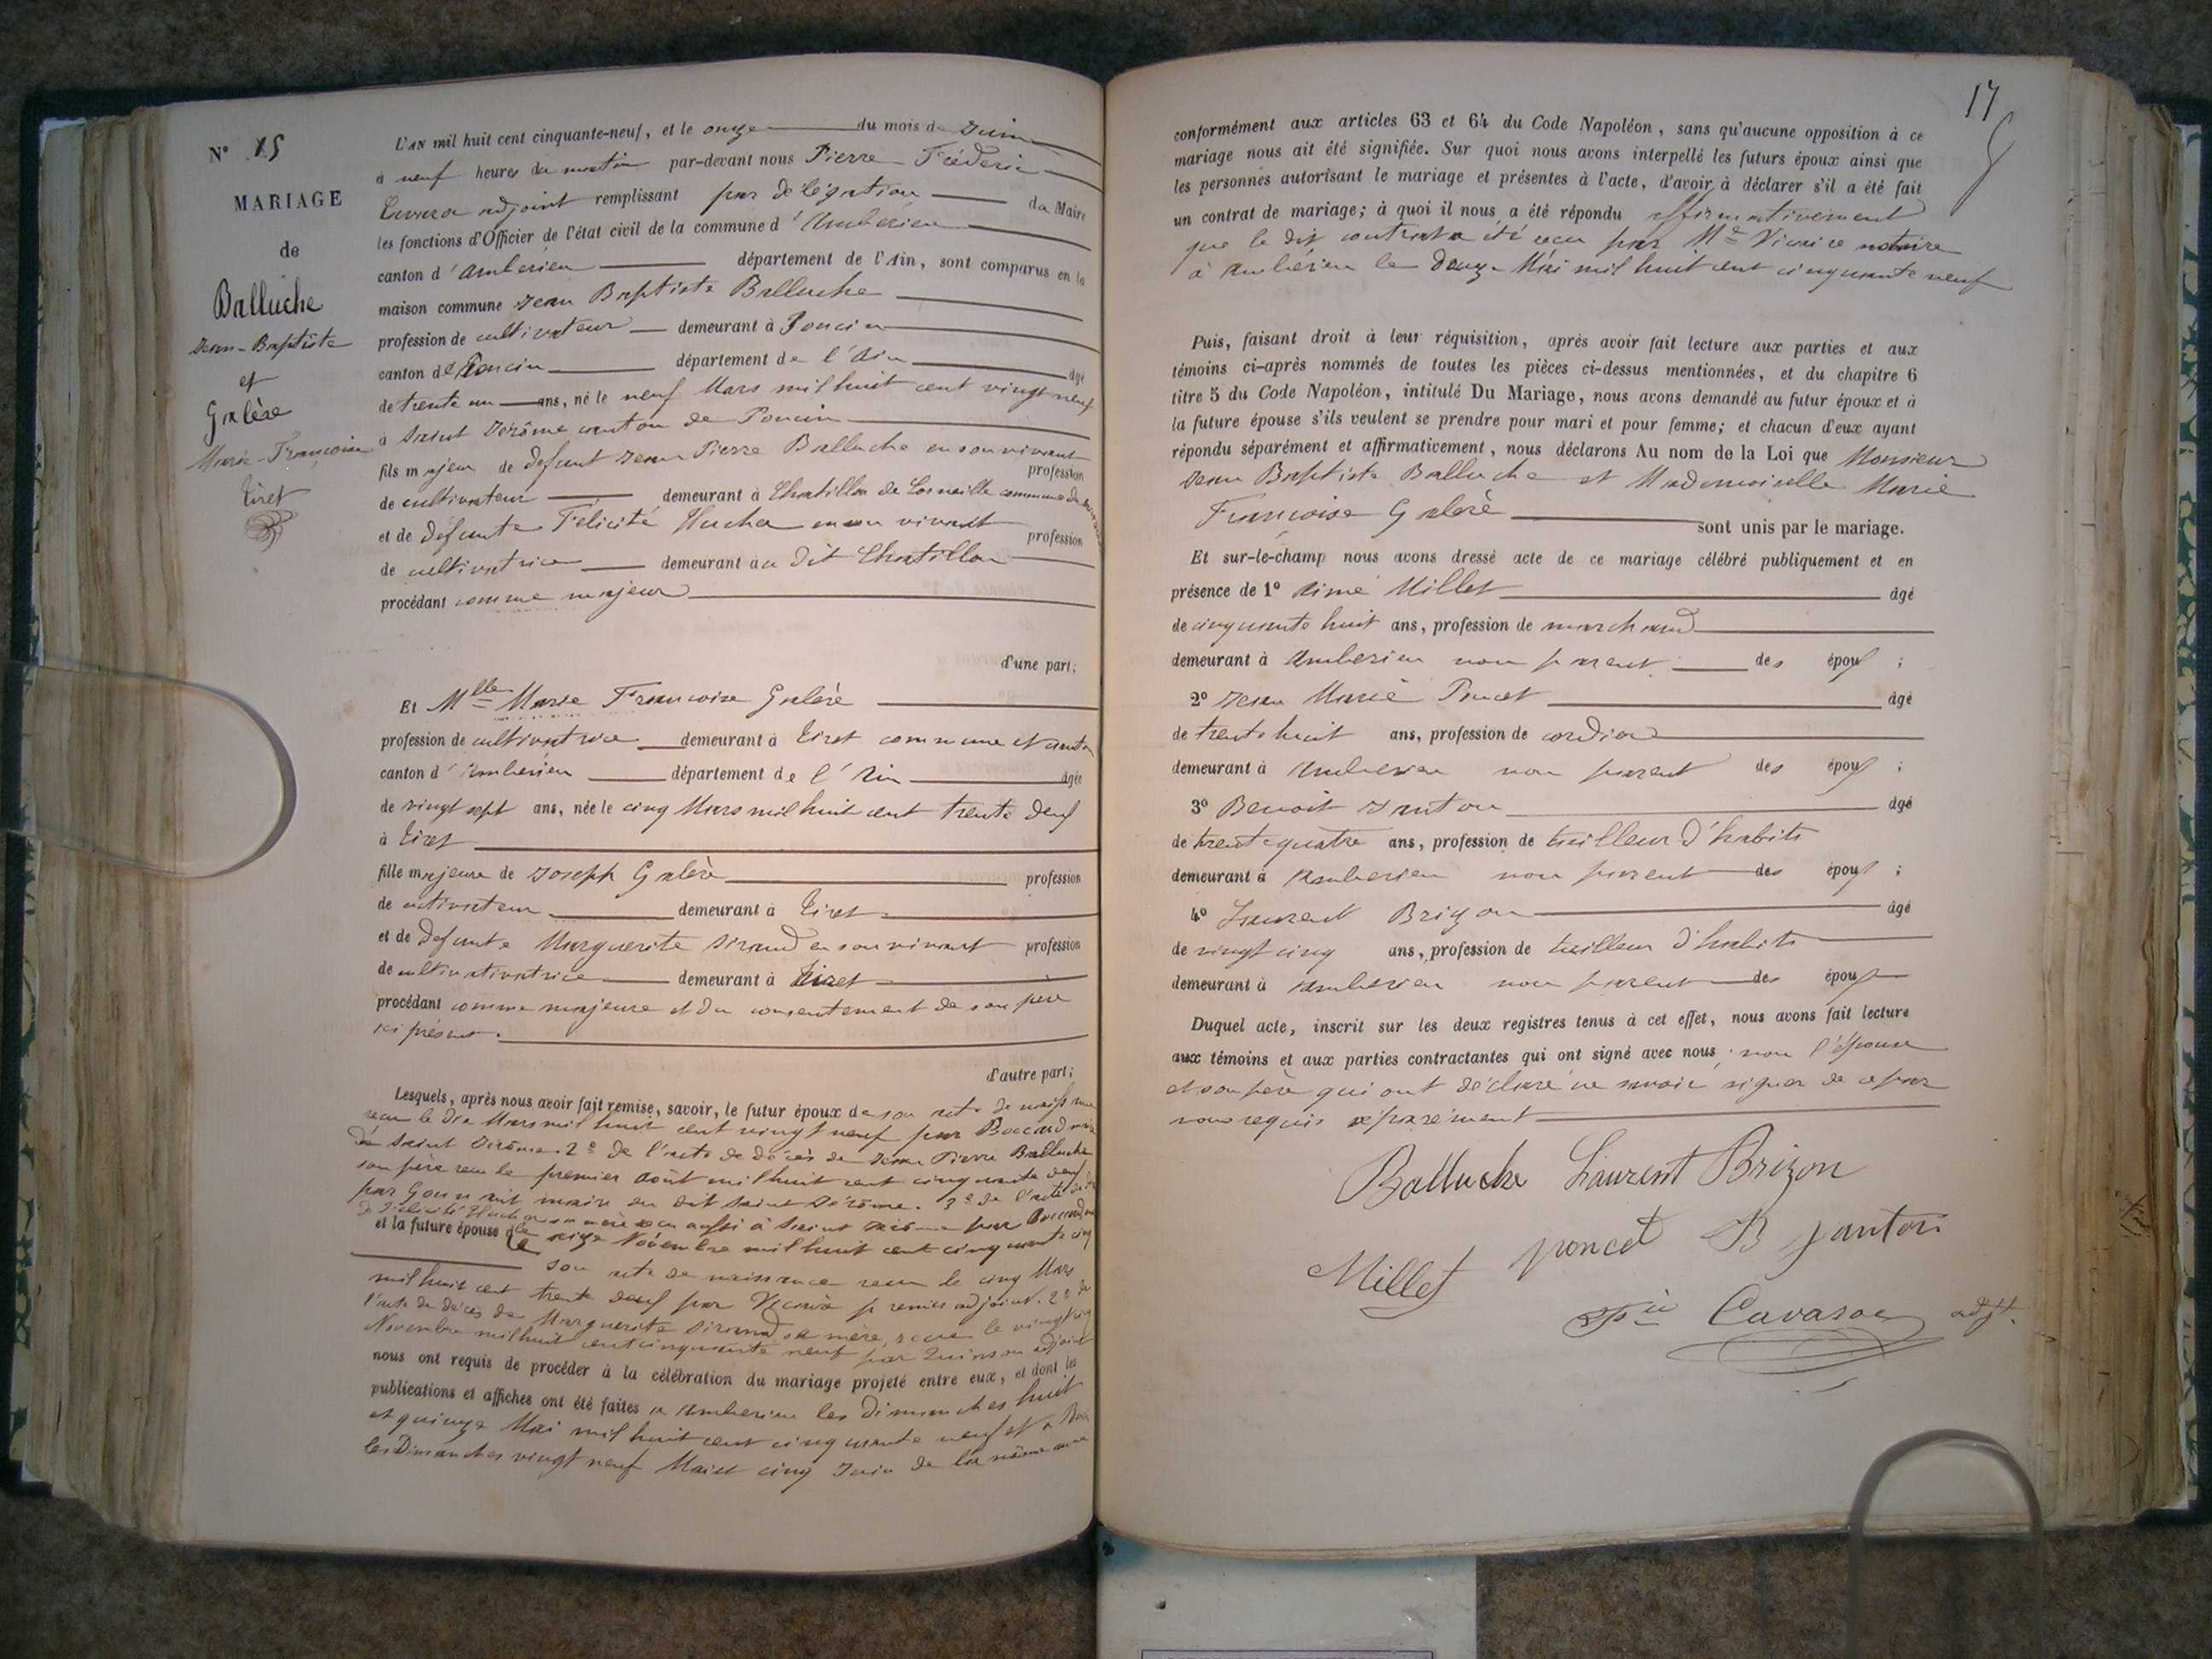 N° 15
MARIAGE
de
Balluche
Jean-Baptiste
et
Galère
Marie-Françoise
Tiret
L'AN mil huit cent cinquante-neuf, et le onze du mois de Juin
à neuf heures du matin par-devant nous Pierre-Fréderic
adjoint remplissant par délégation du Maire
les fonctions d'Officier de l'état civil de la commune d'Ambérieu
canton d'Ambérieu département de l'Ain, sont comparus en la
maison commune Jean Baptiste Balluche
profession de cultivateur demeurant à Poncin
canton de Poncin département de l'Ain âgé
de trente un ans, né le neuf Mars mil huit cent vingt neuf
à Saint Jérôme canton de Poncin
fils majeur de defunt Jean Pierre Balluche en son vivant profession
de cultivateur demeurant à Chatillon de Corneille commune de
et de defunte Félicité Hucha en son vivant profession
de cultivatrice demeurant au dit Chatillon
procédant comme majeur
d'une part;
Et Mlle Marie Françoise Galère
profession de cultivatrice demeurant à Tiret commune et canton
canton d'Ambérieu département de l'Ain âgée
de vingt sept ans, née le cinq Mars mil huit cent trente deux
à Tiret
fille majeure de Joseph Galère profession
de cultivateur demeurant à Tiret
et de defunte Marguerite Sirand en son vivant profession
de cultivativatrice demeurant à Tiret
procédant comme majeure et du consentement de son père
ici présent.
d'autre part;
Lesquels, après nous avoir fait remise, savoir, le futur époux de son acte de naissance
reçu le dix Mars mil huit cent vingt neuf par Boccard maire
de Saint Jérôme. 2° de l'acte de décès de Jean Pierre Balluche
son père reçu le premier Août mil huit cent cinquante deux
par maire du dit Saint Jérôme. 3° de l'acte de
de Félicité Hucha sa mère reçu aussi à Saint Jérôme par Boccard
et la future épouse de le seize Novembre mil huit cent cinquante cinq
son acte de naissance reçu le cinq Mars
mil huit cent trente deux par Vicaire premier adjoint. 2° de
l'acte de décès de Marguerite Sirand sa mère, reçu le vingt cinq
Novembre mil huit cent cinquante neuf par Quinson adjoint
nous ont requis de procéder à la célébration du mariage projeté entre eux, et dont les
publications et affiches ont été faites à Ambérieu les dimanches huit
et quinze Mai mil huit cent cinquante neuf et à
les Dimanches vingt neuf Mai et cinq Juin de la même année
17
conformément aux articles 63 et 64 du Code Napoléon, sans qu'aucune opposition à ce
mariage nous ait été signifiée. Sur quoi nous avons interpellé les futurs époux ainsi que
les personnes autorisant le mariage et présentes à l'acte, d'avoir à déclarer s'il a été fait
un contrat de mariage; à quoi il nous a été répondu affirmativement
que le dit contrat a été reçu par Me Vicaire notaire
à Ambérieu le douze Mai mil huit cent cinquante neuf
Puis, faisant droit à leur réquisition, après avoir fait lecture aux parties et aux
témoins ci-après nommés de toutes les pièces ci-dessus mentionnées, et du chapitre 6
titre 5 du Code Napoléon, intitulé Du Mariage, nous avons demandé au futur époux et à
la future épouse s'ils veulent se prendre pour mari et pour femme; et chacun d'eux ayant
répondu séparément et affirmativement, nous déclarons Au nom de la Loi que Monsieur
Jean Baptiste Balluche et Mademoiselle Marie
Françoise Galère sont unis par le mariage.
Et sur-le-champ nous avons dressé acte de ce mariage célébré publiquement et en
présence de 1° Aimé Millet âgé
de cinquante huit ans, profession de marchand
demeurant à Ambérieu non parent des époux;
2° Jean Marie Poncet âgé
de trente huit ans, profession de
demeurant à Ambérieu non parent des époux;
3° Benoit Janton âgé
de trente quatre ans, profession de tailleur d'habits
demeurant à Ambérieu non parent des époux;
4° Laurent Brizon âgé
de vingt cinq ans, profession de tailleur d'habits
demeurant à Ambérieu non parent des époux
Duquel acte, inscrit sur les deux registres tenus à cet effet, nous avons fait lecture
aux témoins et aux parties contractantes qui ont signé avec nous, non l'épouse
et son père qui ont déclaré ne savoir signer de ce par
nous requis séparément
Balluche Laurent Brizon
Millet poncet B Janton
adjt.